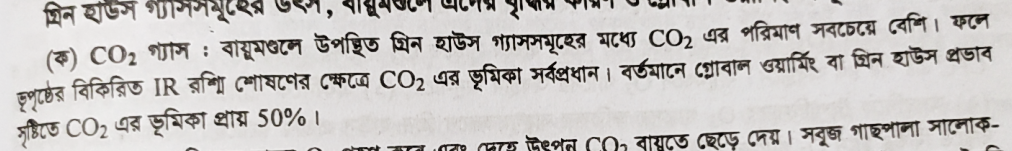 গ্রিন হাউস গ্যাসসমূহের উৎস, বায়ুমণ্ডলে
(ক) CO₂ গ্যাস : বায়ুমণ্ডলে উপস্থিত গ্রিন হাউস গ্যাসসমূহের মধ্যে CO₂ এর পরিমাণ সবচেয়ে বেশি। ফলে
ভূপৃষ্ঠের বিকিরিত IR রশ্মি শোষণের ক্ষেত্রে CO₂ এর ভূমিকা সর্বপ্রধান। বর্তমানে গ্লোবাল ওয়ার্মিং বা গ্রিন হাউস প্রভাব
সৃষ্টিতে CO₂ এর ভূমিকা প্রায় 50%।
উৎপন্ন CO₂ বায়ুতে ছেড়ে দেয়। সবুজ গাছপালা সালোক-